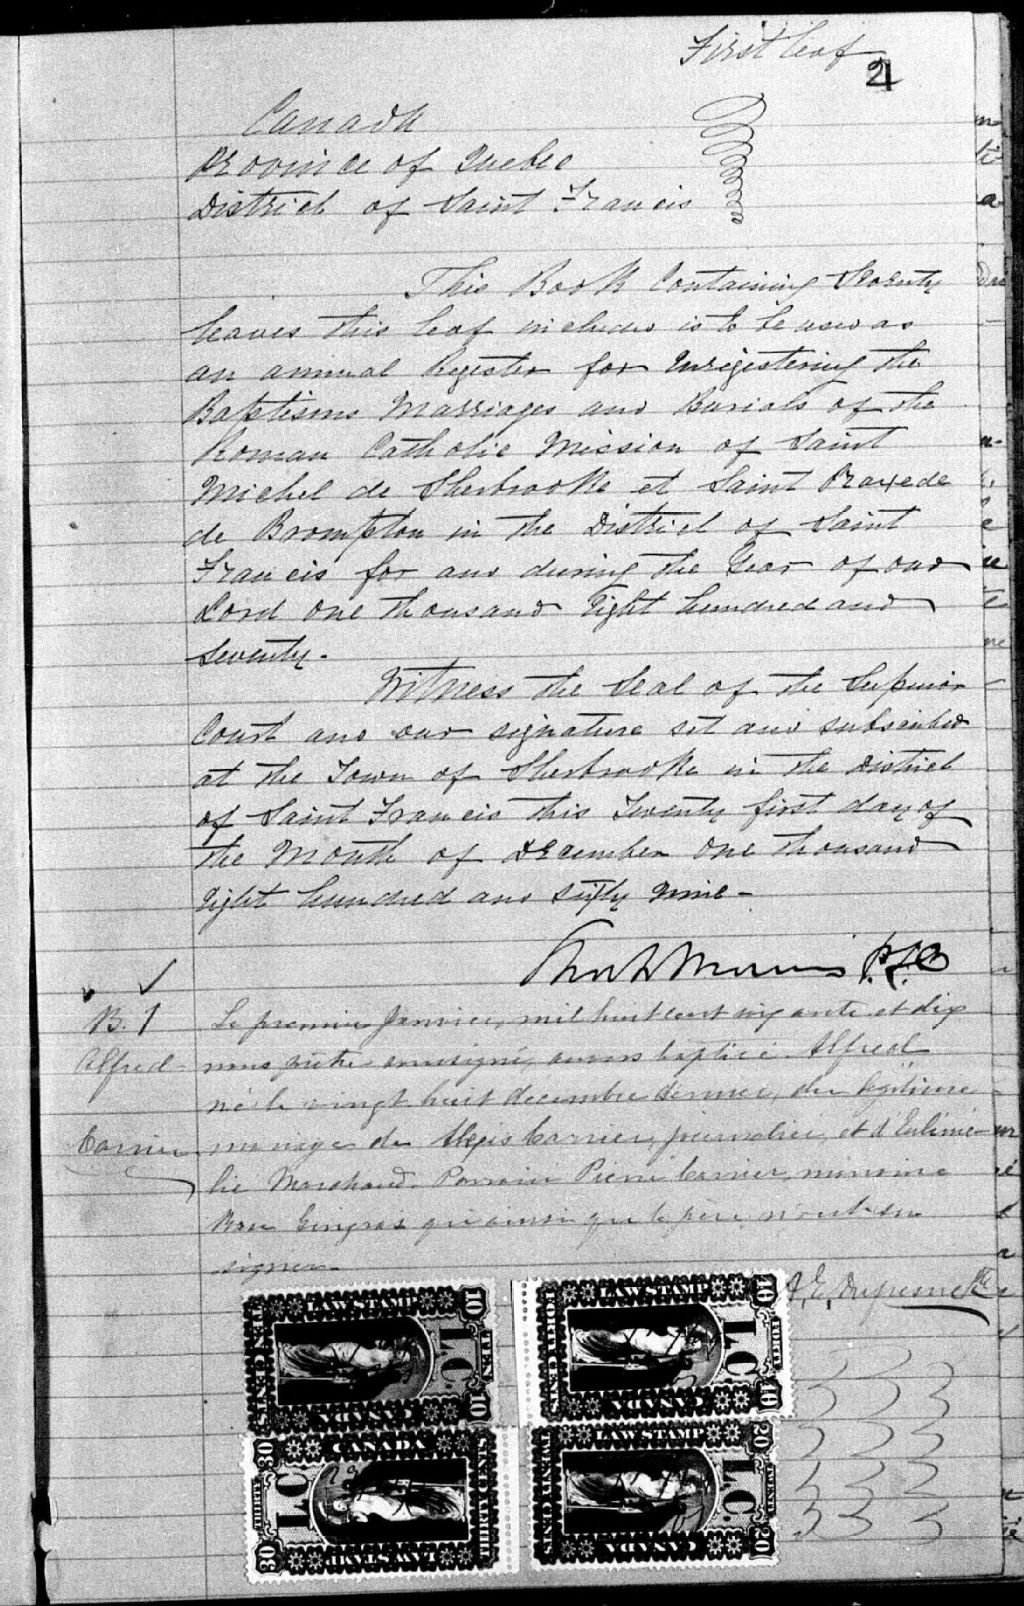 First leaf
21
Canada
Province of Quebec
District of Saint Francis
This Book Containing Seventy
leaves this leaf included is to be used as
an annual Register for Enregistering the
Baptisms Marriages and Burials of the
Roman Catholic Mission of Saint
Michel de Sherbrooke et Saint Praxede
de Brompton in the District of Saint
Francis for and during the Year of our
Lord One thousand Eight hundred and
Seventy.
Witness the Seal of the Superior
Court and our signature set and subscribed
at the Town of Sherbrooke in the District
of Saint Francis this Twenty first day of
the Month of December One thousand
Eight hundred and sixty nine -
Morris P.S.C
B. 1
Alfred
Carrier
Le premier Janvier, mil huit cent soixante et dix
nous prêtre soussigné, avons baptisé Alfred
né le vingt huit decembre dernier, du légitime
mariage de Alexis Carrier, journalier, et d'
lie Marchand. Parrain Pierre Carrier, marraine
Rose Gingras qui ainsi que le père n'ont su
signer.
A. E. Dufresne Ptre
LAW STAMP
TEN CENTS
10
L C.
TEN
10
CANADA
LAW STAMP
FORTY CENTS
40
L C
FORTY
40
CANADA
30
CANADA
THIRTY
L C
THIRTY CENTS
30
LAW STAMP
LAW STAMP
TWENTY CENTS
20
L C.
TWENTY
20
CANADA